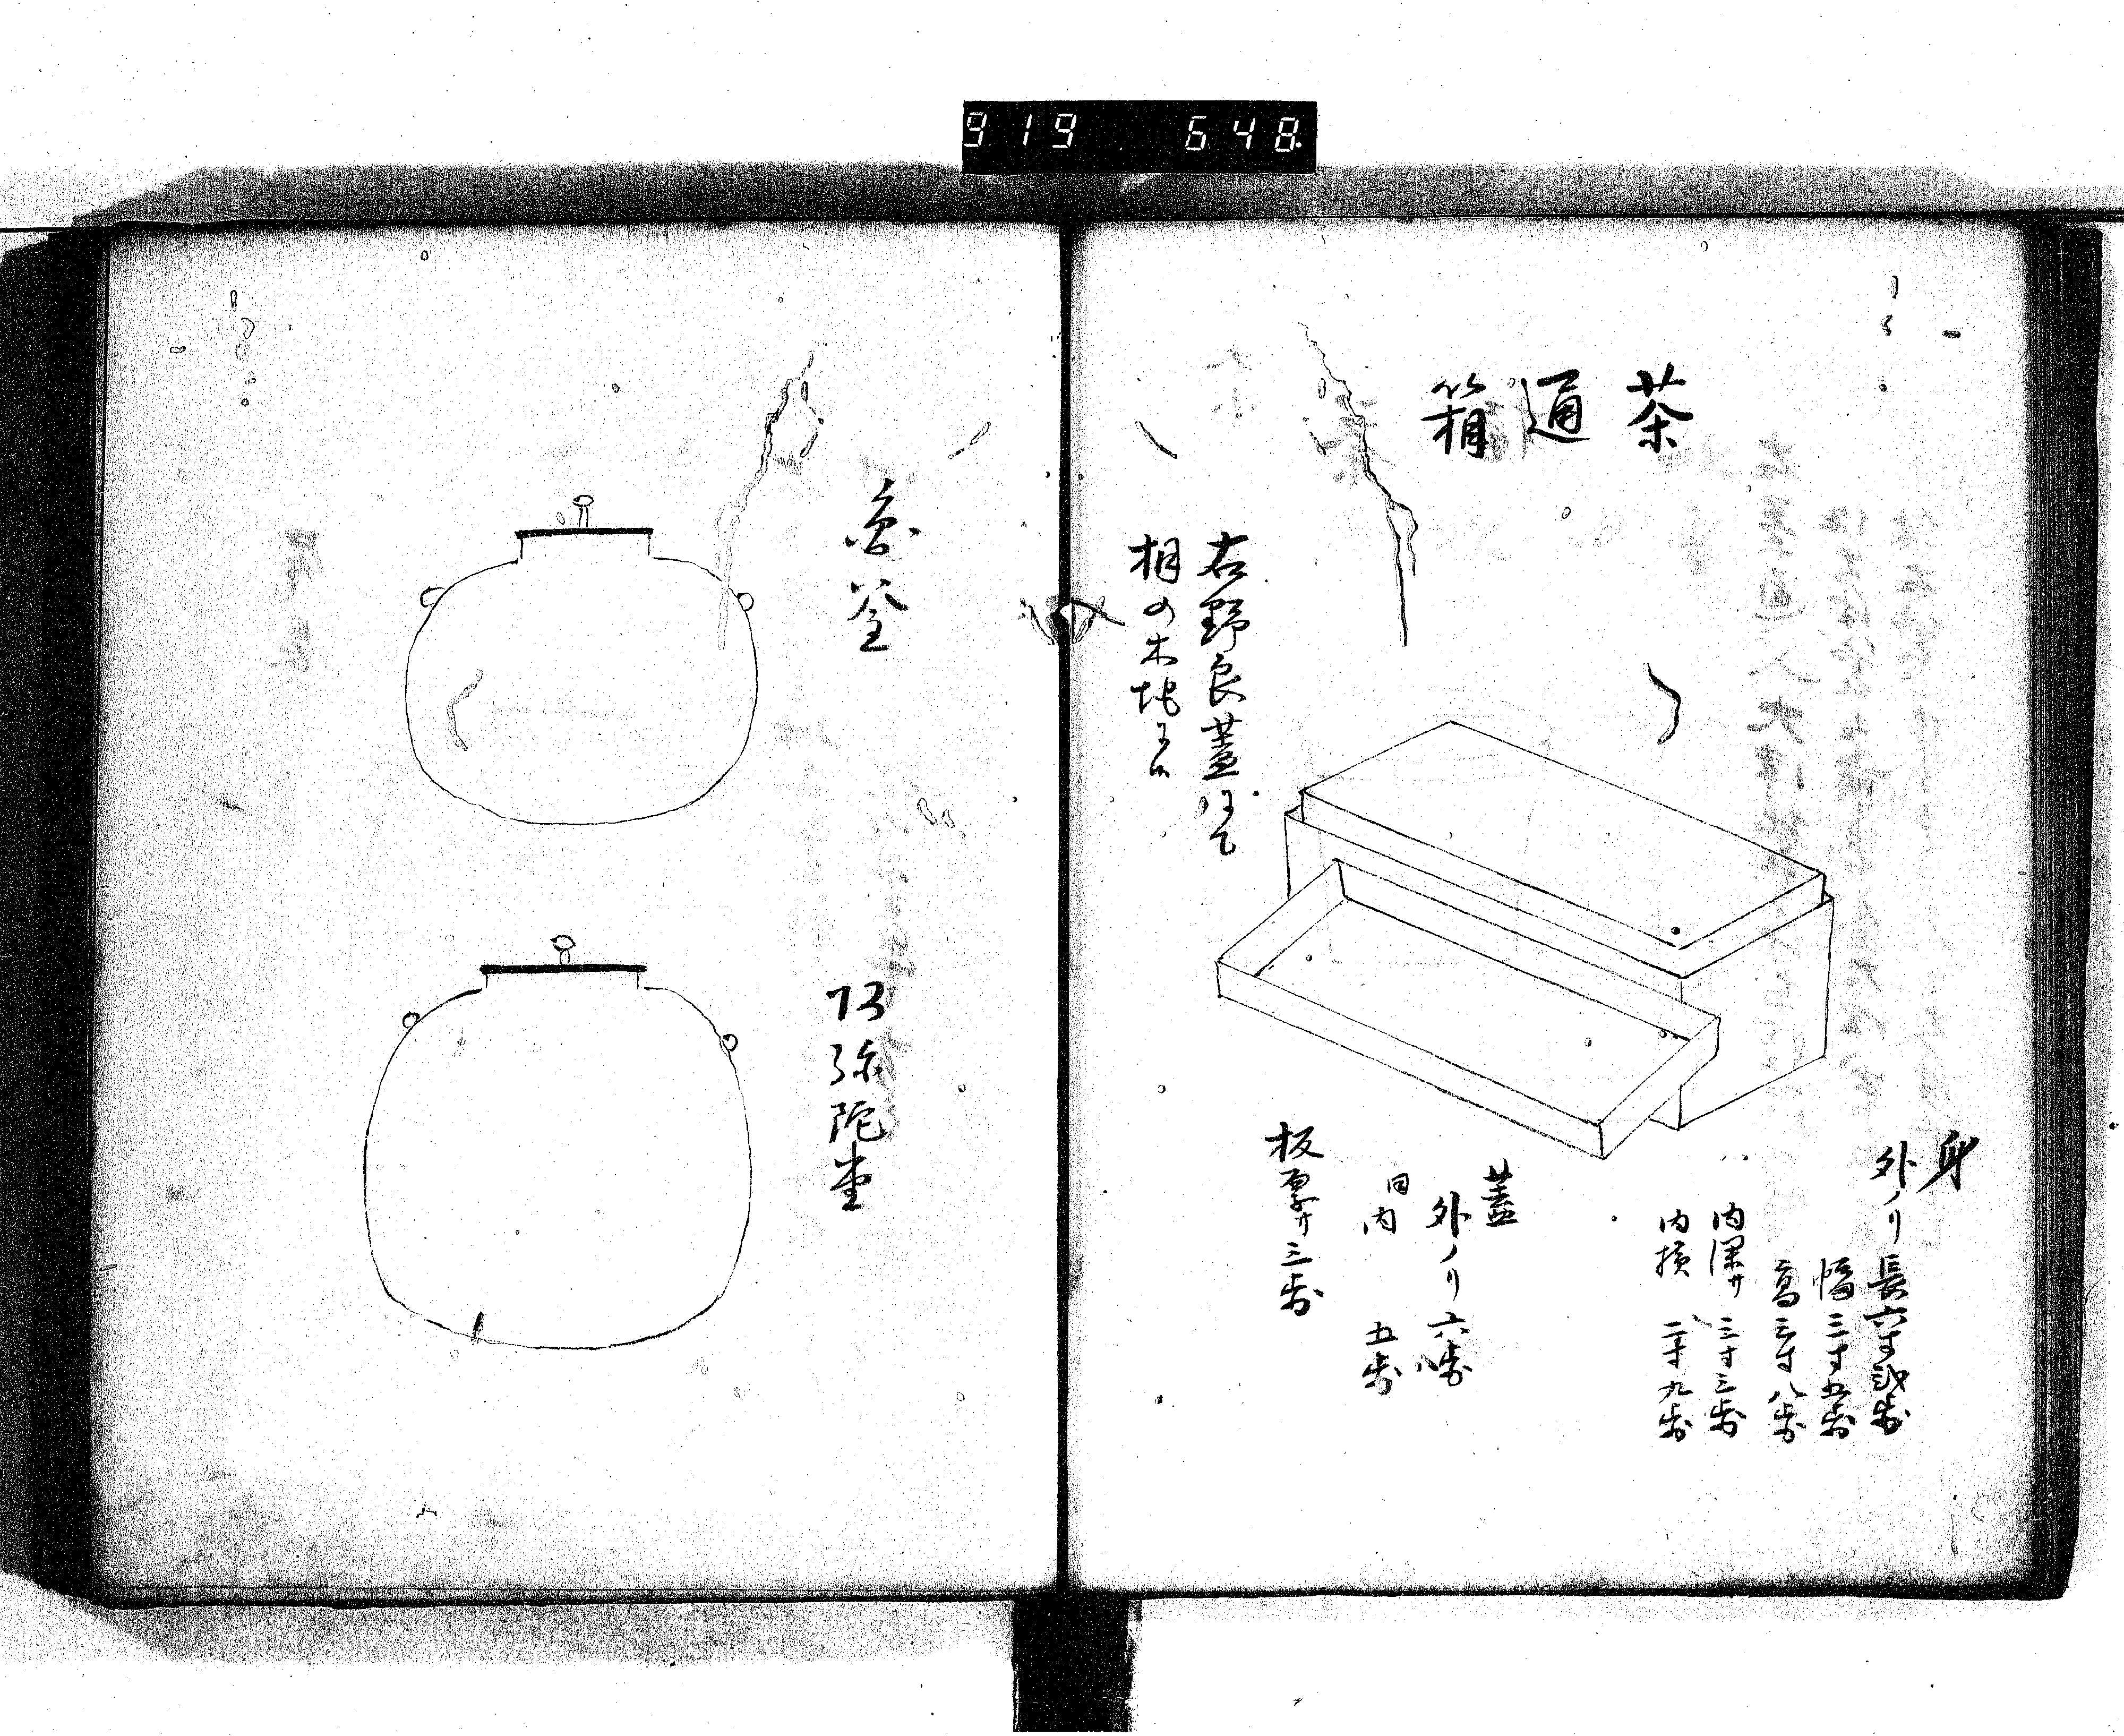 919 648
茶通箱
身
外ノリ長六寸弐歩
幅三寸五歩
高三寸八歩
内深サ三寸三歩
内横 二寸九歩
蓋
外ノリ六歩
同内 五歩
板厚サ三歩
右野良蓋ニて
桐の木地
釜
阿弥陀堂